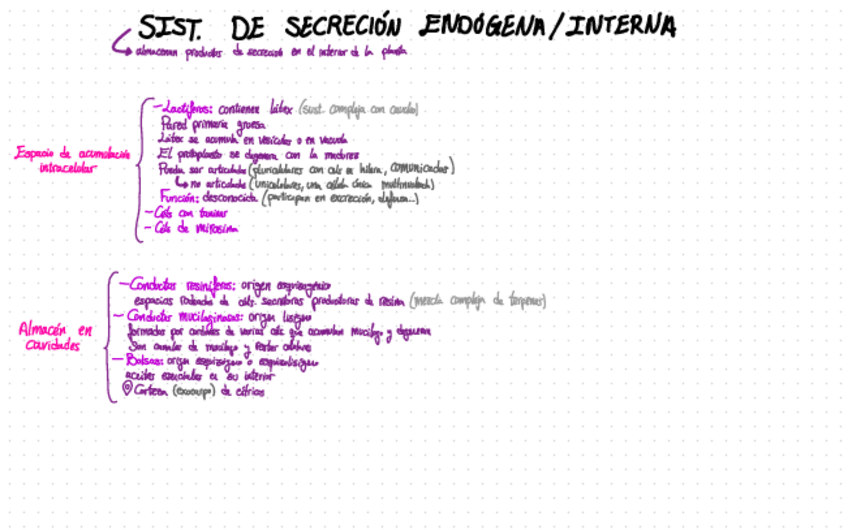 SIST. DE SECRECIÓN ENDÓGENA/INTERNA
almacenan productos de secreción en el interior de la planta
Espacio de acumulación intracelular
- Lactíferos: contienen látex (sust. compleja con caucho)
Pared primaria gruesa
Látex se acumula en vesículas o en vacuola
El protoplasto se degenera con la madurez
Pueden ser articulados (pluricelulares con cels en hilera, comunicadas)
no articulados (unicelulares, una célula única multinucleada)
Función: desconocida (participan en excreción, defensa...)
- Cels con taninos
- Cels de mirosina
Almacén en cavidades
- Conductos resiníferos: origen esquizógeno
espacios rodeados de cels. secretoras productoras de resina (mezcla compleja de terpenos)
- Conductos mucilaginosos: origen lisígeno
formados por cordones de varias cels que acumulan mucílago y degeneran
Son canales de mucílago y restos celulares
- Bolsas: origen esquizógeno o esquizolisígeno
aceites esenciales en su interior
Corteza (exocarpo) de cítricos